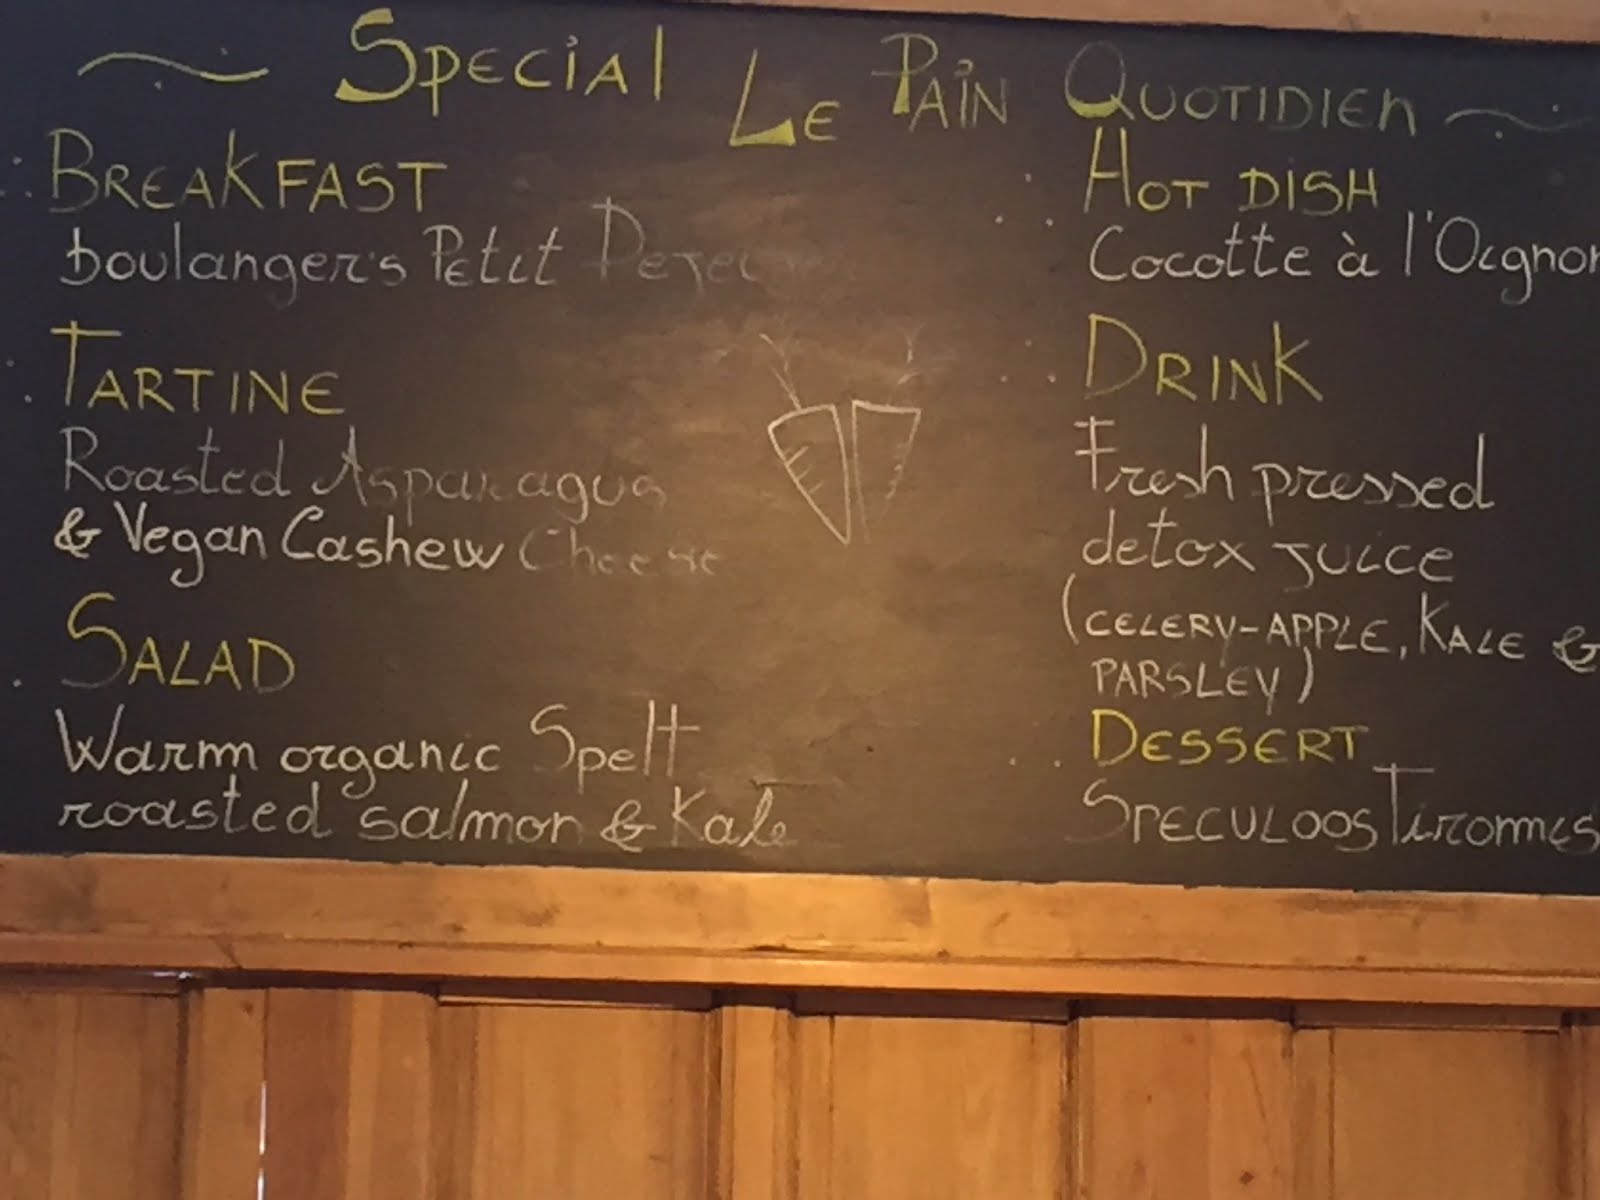 Special Le Pain Quotidien
Breakfast
boulanger's Petit
Tartine
Roasted Asparagus
& Vegan Cashew Cheese
Salad
Warm organic Spelt
roasted salmon & Kale
Hot dish
Cocotte à l'Oignon
Drink
Fresh pressed
detox juice
(celery-apple, Kale &
parsley)
Dessert
Speculoos